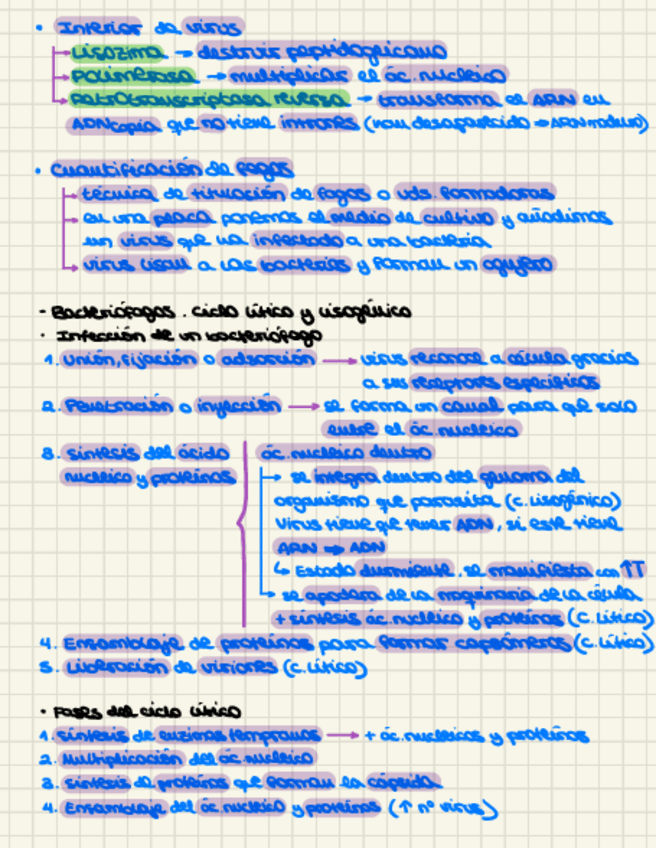 • Interior de virus
→ Lisozima → destruir peptidoglicano
→ Polimerasa → multiplicar el ác. nucleico
→ Retrotranscriptasa reversa → transforma el ARN en
ADNcopia que no tiene intrones (han desaparecido → ARN maduro)
• Cuantificación de fagos
→ técnica de titulación de fagos o uds. formadoras
→ en una placa ponemos el medio de cultivo y añadimos
un virus que ha infectado a una bacteria
→ virus lisan a las bacterias y forman un agujero
- Bacteriófagos. ciclo lítico y lisogénico
• Infección de un bacteriófago
1. Unión, fijación o adsorción → virus reconoce a célula gracias
a sus receptores específicos
2. Penetración o inyección → se forma un canal para que solo
entre el ác. nucleico
3. síntesis del ácido nucleico y proteínas
ác. nucleico dentro
→ se integra dentro del genoma del
organismo que parasita (c. lisogénico)
Virus tiene que tener ADN, si este tiene
ARN → ADN
↳ Estado durmiente. se manifiesta con ↑T
→ se apodera de la maquinaria de la célula
+ síntesis ác. nucleico y proteínas (c. lítico)
4. Ensamblaje de proteínas para formar capsómeros (c. lítico)
5. Liberación de viriones (c. lítico)
• Fases del ciclo lítico
1. síntesis de enzimas tempranas → + ác. nucleicos y proteínas
2. Multiplicación del ác. nucleico
3. síntesis de proteínas que forman la cápsida
4. Ensamblaje del ác. nucleico y proteínas (↑ nº virus)